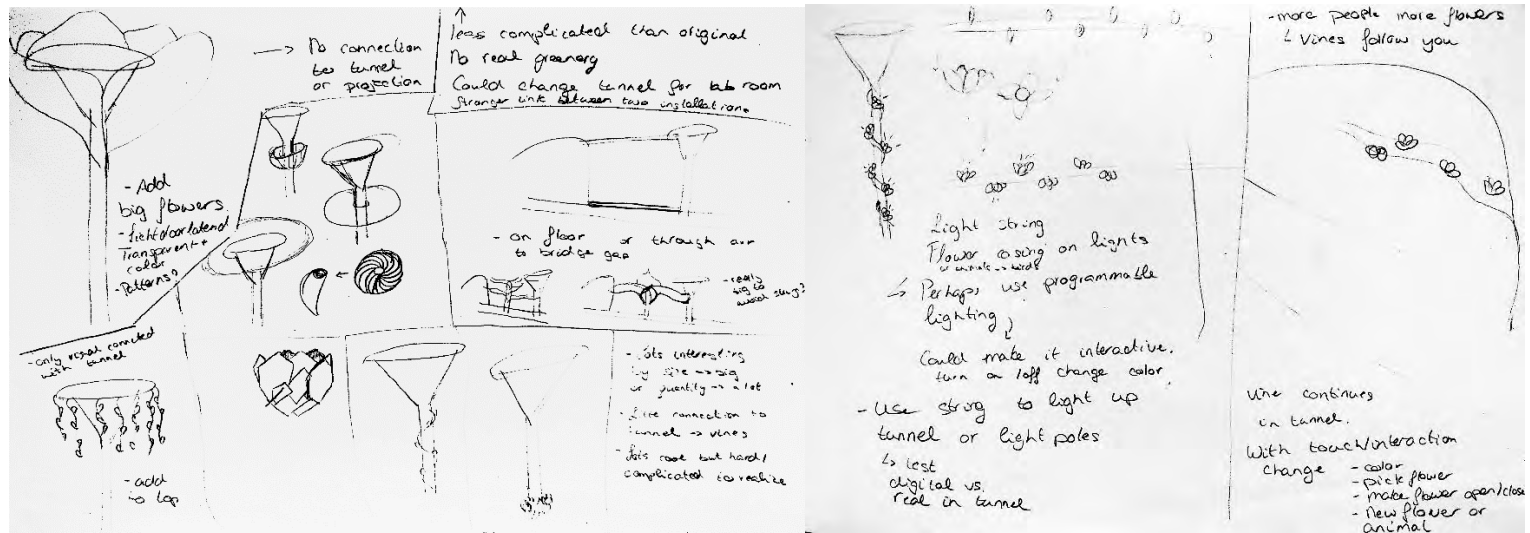 → No connection
to tunnel
or projection
↑
less complicated than original
No real greenery
Could change tunnel for lab room
Stronger link between two installations
- Add
big flowers.
Transparent +
color
- Patterns?
- on floor or through air
to bridge gap
- really
big to
avoid
- only visual connected
with tunnel
- add
to top
- gets interesting
by size → big
or quantity → a lot
- Live connection to
tunnel → vines
- gets cool but hard/
complicated to realize
Light string
Flower casing on lights
or animals → birds
→ Perhaps use programmable
lighting
Could make it interactive.
turn on/off change color
- Use string to light up
tunnel or light poles
↳ test
digital vs.
real in tunnel
- more people more flowers
↳ Vines follow you
Vine continues
in tunnel.
With touch/interaction
change - color
- pick flower
- make flower open/close
- new flower or
animal